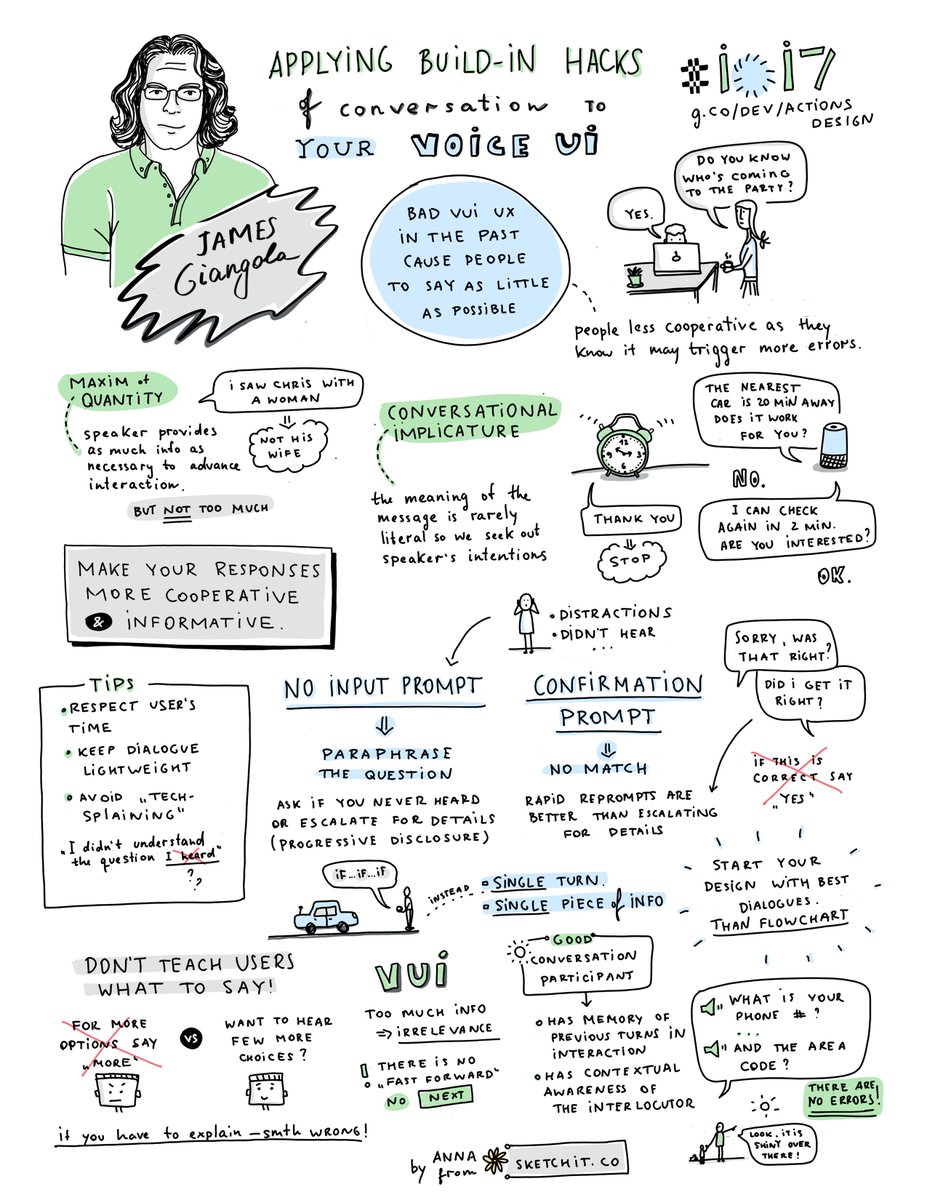 APPLYING BUILD-IN HACKS
of conversation to
YOUR VOICE UI
#io17
g.co/DEV/ACTIONS
DESIGN
JAMES
Giangola
BAD VUI UX
IN THE PAST
CAUSE PEOPLE
TO SAY AS LITTLE
AS POSSIBLE
DO YOU KNOW
WHO'S COMING
TO THE PARTY?
YES.
people less cooperative as they
know it may trigger more errors.
MAXIM of
QUANTITY
speaker provides
as much info as
necessary to advance
interaction.
BUT NOT TOO MUCH
I SAW CHRIS WITH
A WOMAN
NOT HIS
WIFE
CONVERSATIONAL
IMPLICATURE
the meaning of the
message is rarely
literal so we seek out
speaker's intentions
12
3
6
9
THANK YOU
STOP
THE NEAREST
CAR IS 20 MIN AWAY
DOES IT WORK
FOR YOU?
NO.
I CAN CHECK
AGAIN IN 2 MIN.
ARE YOU INTERESTED?
OK.
MAKE YOUR RESPONSES
MORE COOPERATIVE
& INFORMATIVE.
• DISTRACTIONS
• DIDN'T HEAR
...
TIPS
• RESPECT USER'S
TIME
• KEEP DIALOGUE
LIGHTWEIGHT
• AVOID „TECH-
SPLAINING"
„I didn't understand
the question I heard"
?
?
NO INPUT PROMPT
PARAPHRASE
THE QUESTION
ASK IF YOU NEVER HEARD
OR ESCALATE FOR DETAILS
(PROGRESSIVE DISCLOSURE)
CONFIRMATION
PROMPT
NO MATCH
RAPID REPROMPTS ARE
BETTER THAN ESCALATING
FOR DETAILS
SORRY, WAS
THAT RIGHT?
DID I GET IT
RIGHT?
IF THIS IS
CORRECT SAY
„YES"
IF...IF...IF
INSTEAD
SINGLE TURN.
SINGLE PIECE of INFO
START YOUR
DESIGN WITH BEST
DIALOGUES.
THAN FLOWCHART
DON'T TEACH USERS
WHAT TO SAY!
FOR MORE
OPTIONS SAY
„MORE"
VS
WANT TO HEAR
FEW MORE
CHOICES?
if you have to explain – smth WRONG!
VUI
TOO MUCH INFO
⇒ IRRELEVANCE
! THERE IS NO
„FAST FORWARD"
NO NEXT
GOOD
CONVERSATION
PARTICIPANT
• HAS MEMORY OF
PREVIOUS TURNS IN
INTERACTION
• HAS CONTEXTUAL
AWARENESS OF
THE INTERLOCUTOR
WHAT IS YOUR
PHONE # ?
...
AND THE AREA
CODE?
THERE ARE
NO ERRORS!
LOOK, IT IS
SHINY OVER
THERE!
by ANNA
from SKETCHIT.CO